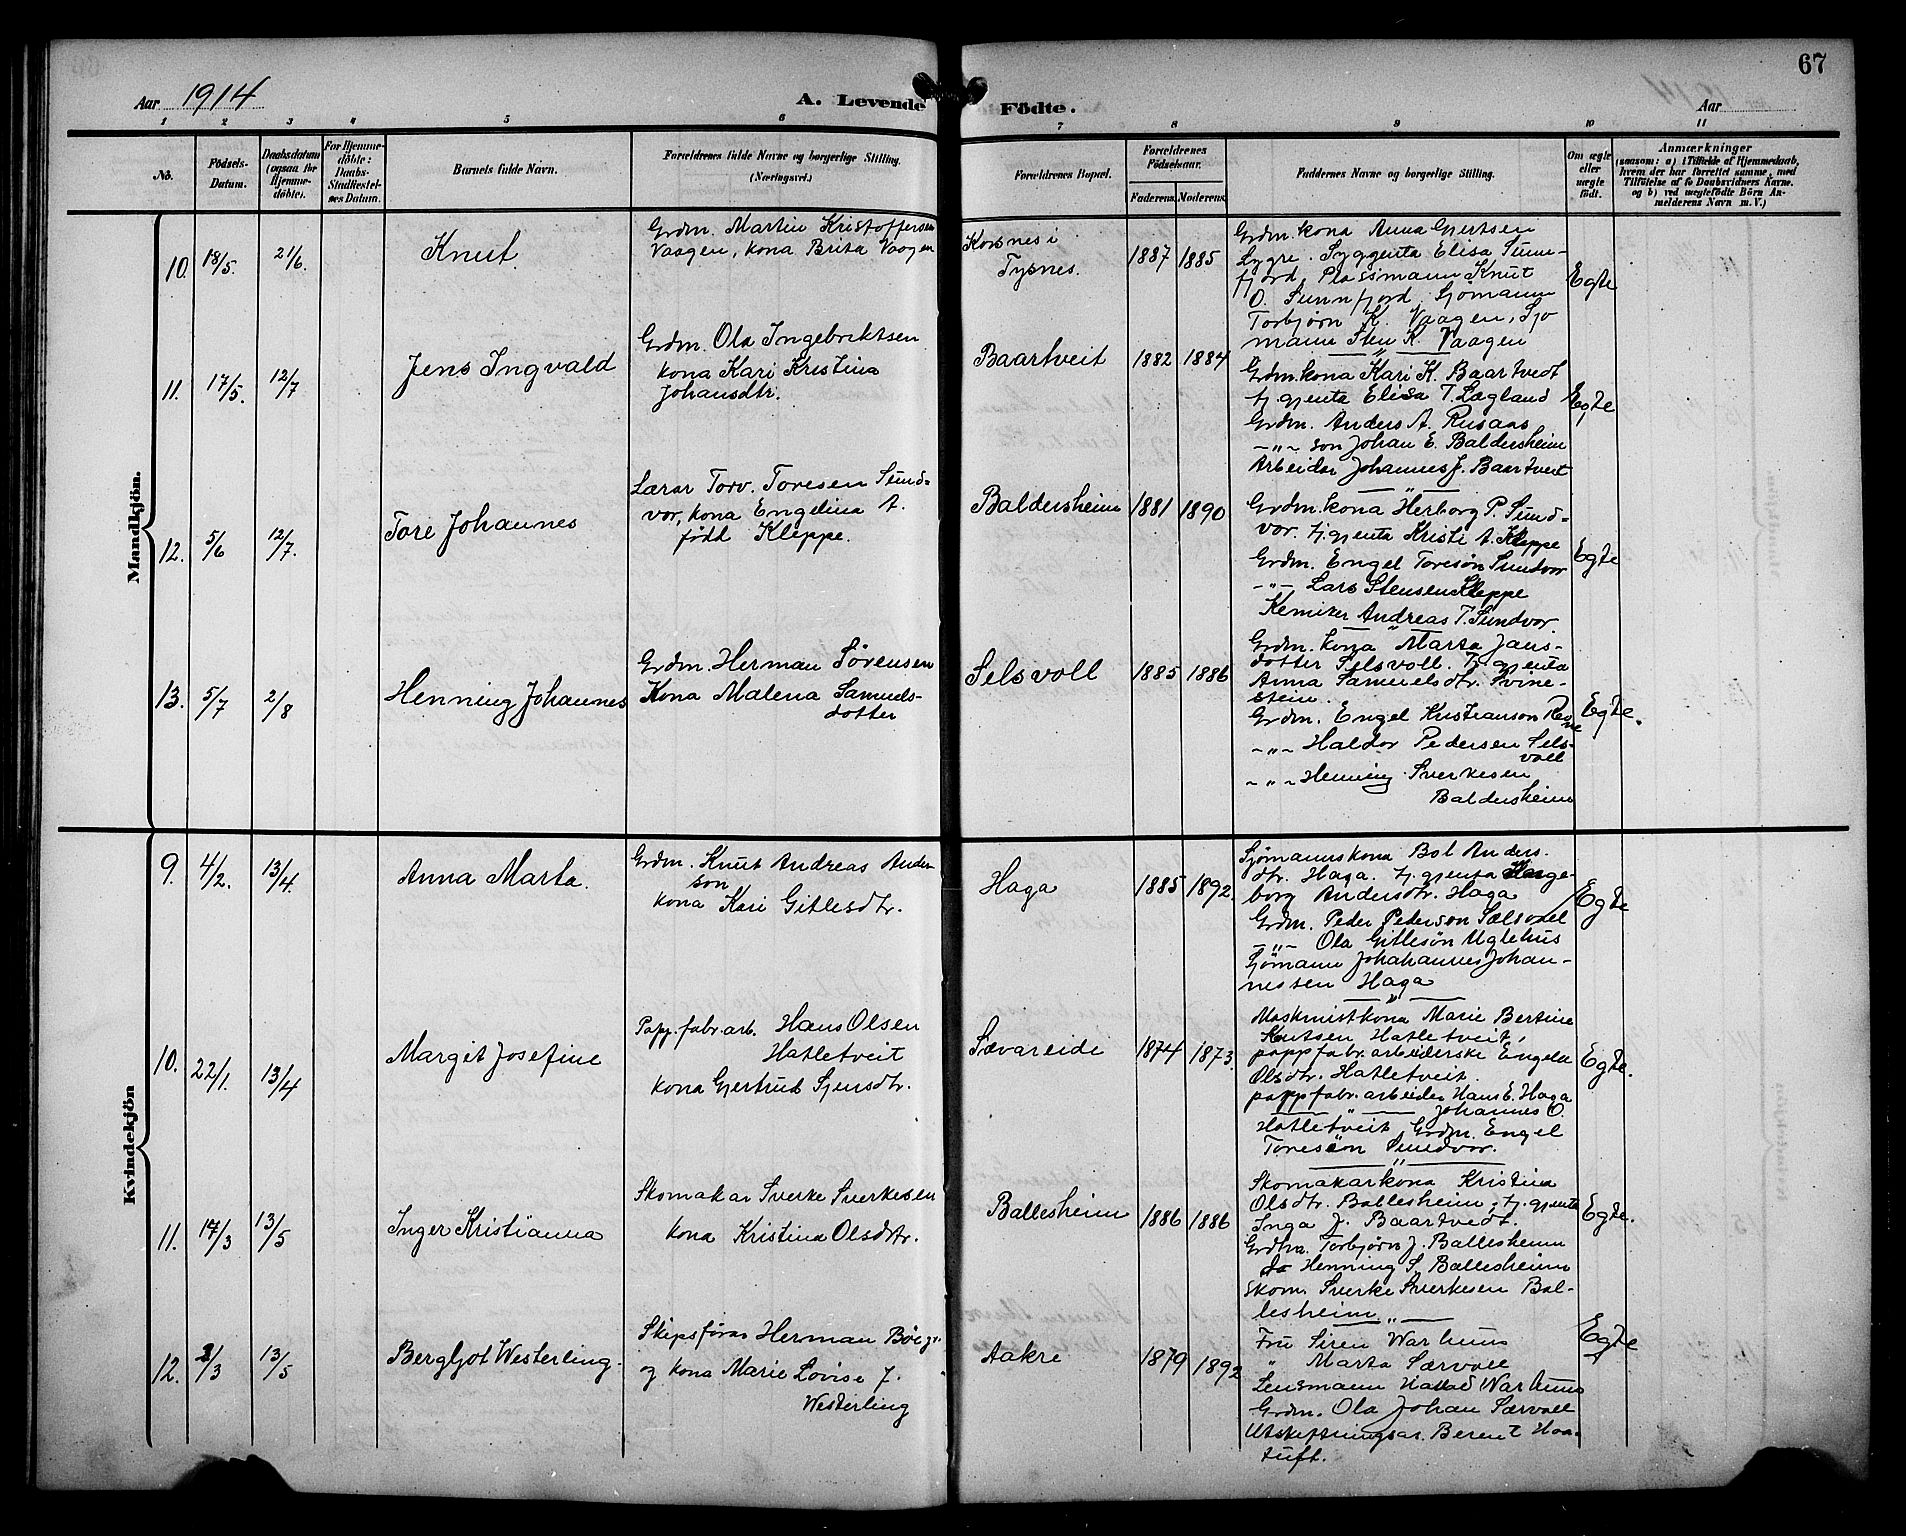 67
Aar 1914
A. Levende Födte.
Aar
1 2 3 4 5 6 7 8 9 10 11
No.
Födsels-Datum.
Daabsdatum (ogsaa for Hjemme-döbte).
For Hjemme-döbte: Daabs-Stadfæstel-ses Datum.
Barnets fulde Navn.
Forældrenes fulde Navne og borgerlige Stilling. (Næringsvei.)
Forældrenes Bopæl.
Forældrenes Födselsaar.
Faderens. Moderens.
Faddernes Navne og borgerlige Stilling.
Om ægte eller uægte födt.
Anmærkninger
(saasom: a) i Tilfælde af Hjemmedaab, hvem der har forrettet samme, med Tilföielse af to Daabsvidners Navne, og b) ved uægtefödte Börn Anmelderens Navn m. V.)
Mandkjön.
10. 18/5. 21/6. Knut.
Grdm. Martin Kristoffersen
Vaagen, kona Brita Vaagen
Korsnes i
Tysnes.
1887 1885
Grdm. kona Anna Gjertsen
Lygre. Syggenta Elisa Sunn-
fjord, Plassmann Knut
O. Sunnfjord, Sjømann
Torbjørn K. Vaagen, Sjø
mann Sten K. Vaagen
Egte
11. 17/5. 12/7 Jens Ingvald
Grdm. Ola Ingebriktsen
kona Kari Kristina
Johansdtr.
Baartveit 1882 1884
Grdm. kona Kari K. Baartvedt
tj. gjenta Elisa T. Lægland
Grdm. Anders A. Rusaas
-"- son Johan E. Baldersheim
Arbeidar Johannes J. Baartveit
Egte
12. 5/6 12/7. Tore Johannes
Lærar Torv. Toresen Sund-
vor, kona Engelina A.
född Kleppe.
Baldersheim 1881 1890
Grdm. kona Herborg P. Sund-
vor. tj. gjenta Kristi A. Kleppe
Grdm. Engel Toresøn Sundvor
-"- Lars Stensen Kleppe
Kemiker Andreas T. Sundvor.
Egte
13. 5/7 2/8 Henning Johannes
Grdm. Herman Sørensen
Kona Malena Samuels-
dotter
Selsvoll 1885 1886
Grdm. kona Marta Jans-
dotter Selsvoll. Tj. gjenta
Anna Samuelsdtr. Svine-
stein.
Grdm. Engel Kristianson Rene
-"- Haldor Pedersen Sels-
voll
-"- Henning Sverkesen
Baldersheim
Egte.
Kvindekjön
9. 4/2. 13/4. Anna Marta.
Grdm. Knut Andreas Ander
son
kona Kari Gitlesdtr.
Haga 1885 1892.
Sjømannskona Bol Anders.
dtr. Haga. tj. gjenta Inge-
borg Andersdtr. Haga
Grdm. Peder Pederson Sælsvoll
-"- Ola Gitlesøn Uglehus
Sjømann Johahannes Johan-
nessen Haga
Egte
10. 22/1. 13/4 Margit Josefine
Papp. fabr. arb. Hans Olsen
Hatletveit
kona Gjertrud Sjursdtr.
Sævareide 1874 1873.
Maskinistkona Marie Bertine
Knutsen Hatletveit,
pappfabr. arbeiderske Engela
Olsdtr. Hatletveit.
pappfabr. arbeider Hans E. Haga
-"- Johannes O.
Hatletveit, Grdm. Engel
Toresøn Sundvor.
Egte.
11. 17/3 13/5 Inger Kristianna
Skomakar Sverke Sverkesen
kona Kristina Olsdtr.
Ballesheim 1886 1886
Skomakarkona Kristina
Olsdtr. Ballesheim, tj. gjenta
Inga J. Baartvedt.
Grdbr. Torbjørn J. Ballesheim
do Henning S. Ballesheim
Skom. Sverke Sverkesen Bal-
lesheim
Egte.
12. 2/3 13/5 Bergljot Westerling.
Skipsførar Herman Böe
og kona Marie Lovise J.
Westerling
Aakre 1879 1892
Fru Siren Warhuus
" Marta Særvoll
Lensmann Hallad Warhuus
Grdm. Ola Johan Særvoll
Utskiftningsar. Berent Haa-
tuft.
Egte